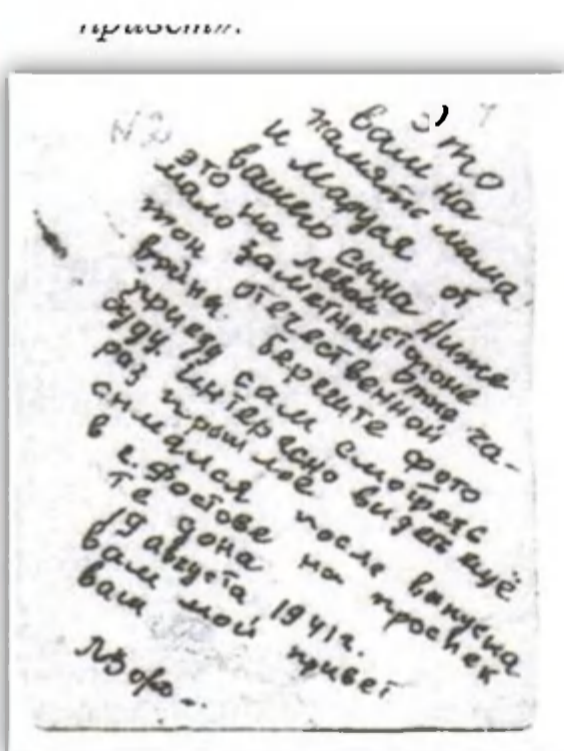 привет».
Это
вам на
память мама
и Маруся от
вашего сына Ниже
это на левой стороне
мало заметный отпеча-
ток отечественной
война. берегите фото
приеду сам смотреть
буду. интересно видеть ещё
раз прошлое
снимался после выпуска
в г. Ростове на проспек
те дона
19 августа 1941г.
вам мой привет
ваш